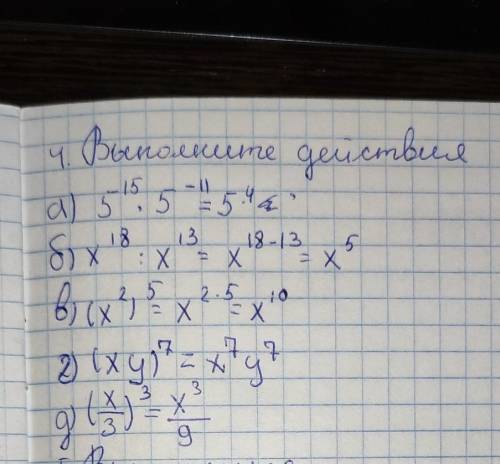 4. Выполните действия
а) 5¹⁵ · 5⁻¹¹ = 5⁴
б) x¹⁸ : x¹³ = x¹⁸⁻¹³ = x⁵
в) (x²)⁵ = x²·⁵ = x¹⁰
г) (xy)⁷ = x⁷y⁷
д) (x/3)³ = x³/9